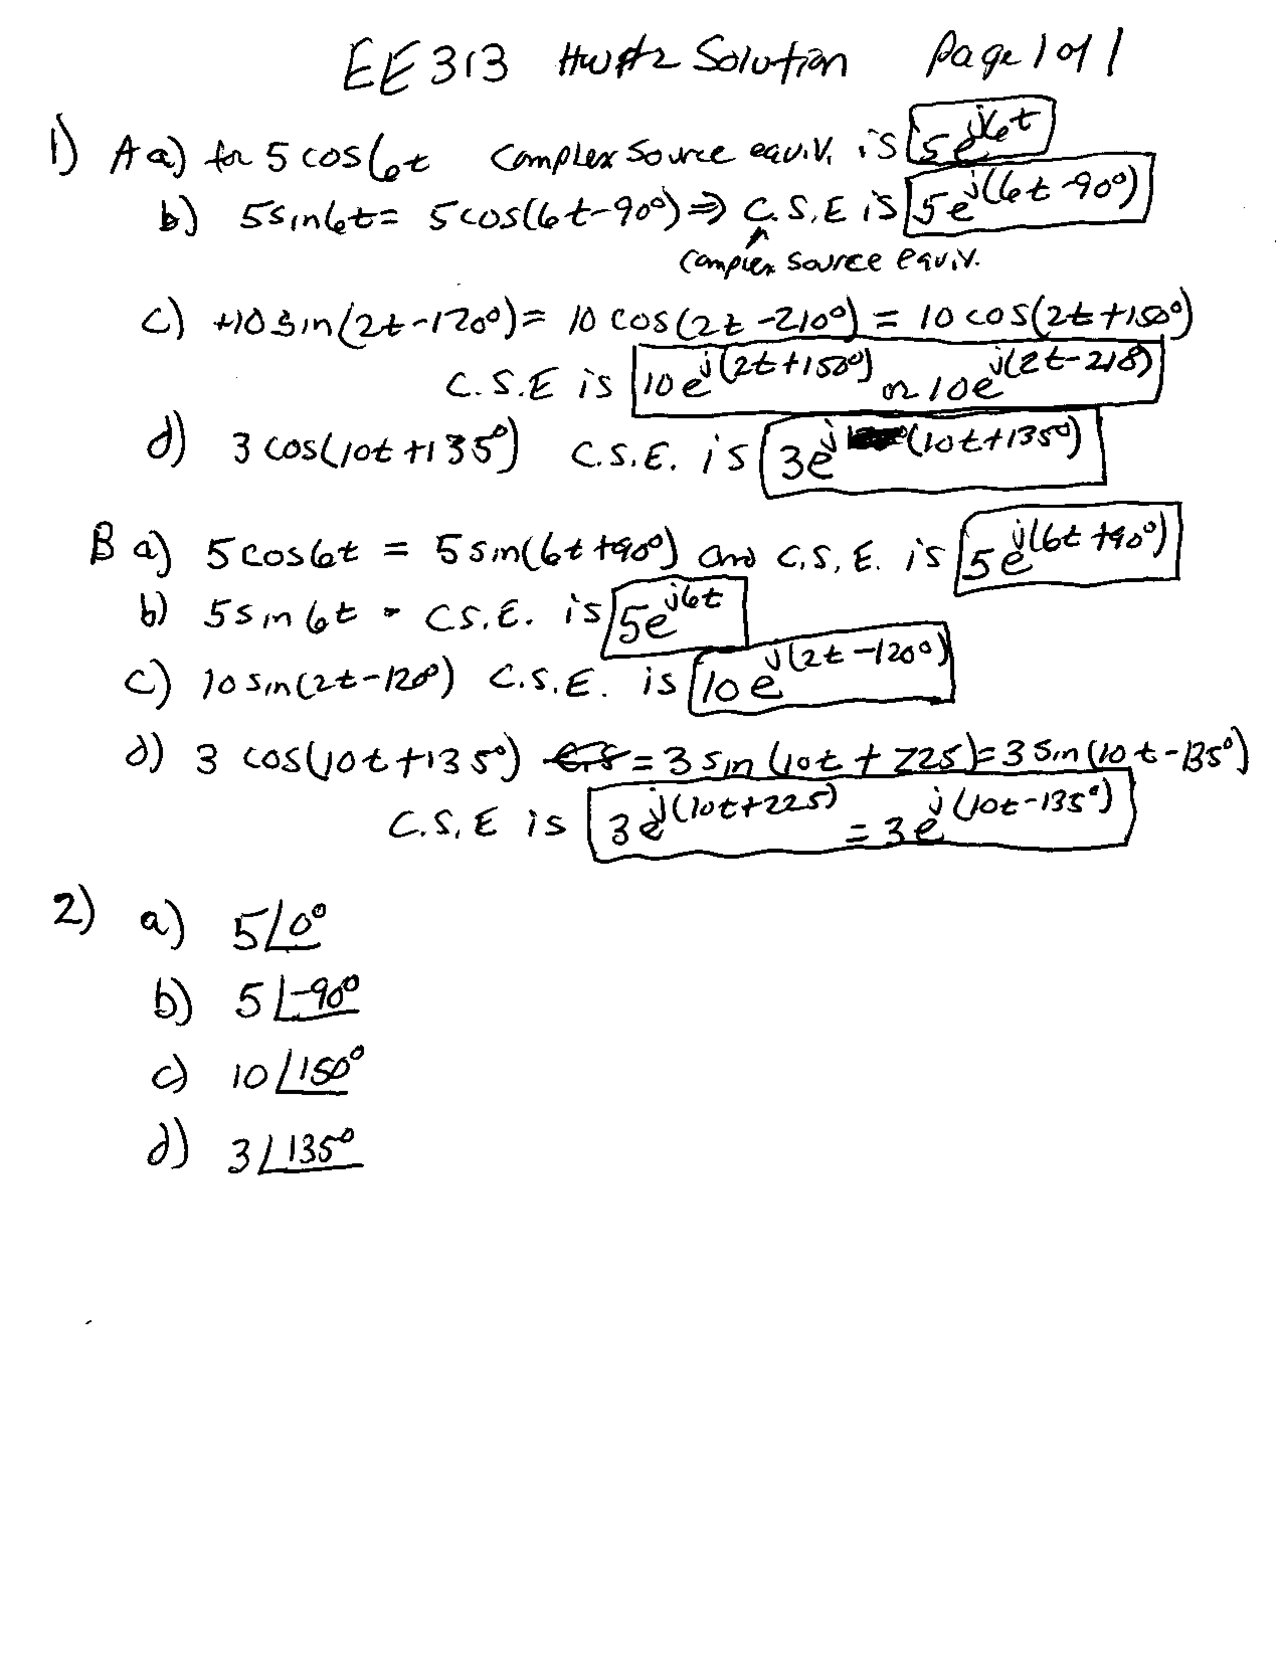 EE313 HW#2 Solution Page 1 of 1
1) A a) for 5 cos 6t Complex Source equiv. is 5e^{j6t}
b) 5 sin 6t = 5 cos(6t-90°) ⇒ C.S.E is 5e^{j(6t-90°)}
Complex Source equiv.
c) +10 sin(2t-120°) = 10 cos(2t-210°) = 10 cos(2t+150°)
C.S.E is 10e^{j(2t+150°)} or 10e^{j(2t-210)}
d) 3 cos(10t+135°) C.S.E. is 3e^{j(10t+135°)}
B a) 5 cos 6t = 5 sin(6t+90°) and C.S.E. is 5e^{j(6t+90°)}
b) 5 sin 6t - C.S.E. is 5e^{j6t}
c) 10 sin(2t-120°) C.S.E. is 10e^{j(2t-120°)}
d) 3 cos(10t+135°) = 3 sin(10t+225) = 3 sin(10t-135°)
C.S.E is 3e^{j(10t+225)} = 3e^{j(10t-135°)}
2) a) 5∠0°
b) 5∠-90°
c) 10∠150°
d) 3∠135°